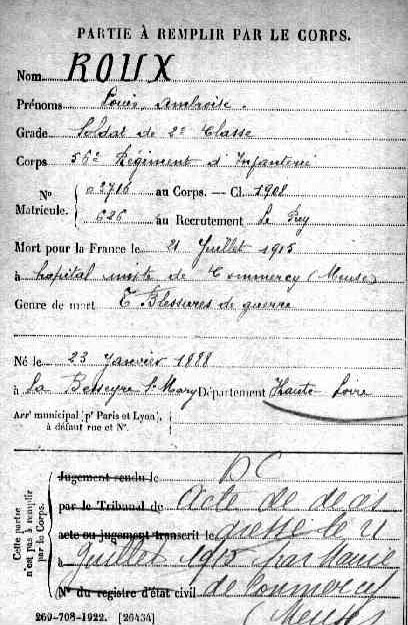 PARTIE À REMPLIR PAR LE CORPS.
Nom ROUX
Prénoms Louis, Ambroise.
Grade Soldat de 2e Classe
Corps 56e Régiment d'Infanterie
No 02716 au Corps. — Cl. 1908
Matricule. 626 au Recrutement Le Puy
Mort pour la France le 21 Juillet 1915
à hopital mixte de Commercy (Meuse)
Genre de mort Blessures de guerre
Né le 23 Janvier 1888
à La Besseyre St Mary Département Haute-Loire
Arrt municipal (pr Paris et Lyon),
à défaut rue et No.
Cette partie n'est pas à remplir par le Corps.
Jugement rendu le DC
par le Tribunal de acte de décès
acte ou jugement transcrit le dressé le 21
à Juillet 1915 par Mairie
No du registre d'état civil de Commercy
(Meuse)
269-708-1922. [26434]